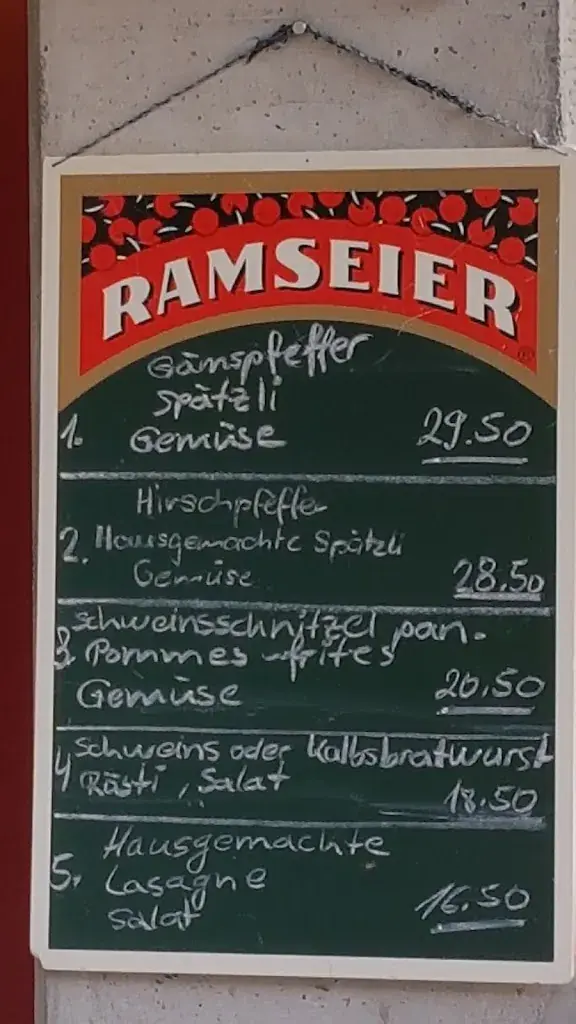 RAMSEIER
Gämspfeffer
Spätzli
1. Gemüse 29.50
Hirschpfeffer
2. Hausgemachte Spätzli
Gemüse 28.50
Schweinsschnitzel pan.
3. Pommes-frites
Gemüse 20.50
Schweins oder Kalbsbratwurst
4 Rösti, Salat
18.50
Hausgemachte
5. Lasagne
Salat 16.50